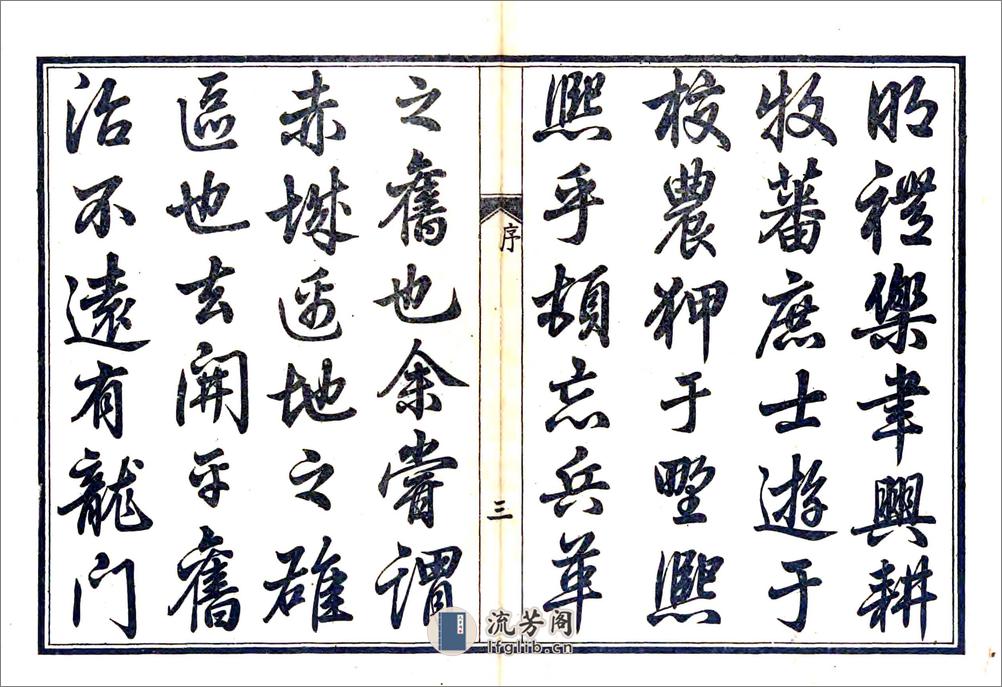 明禮樂聿興耕
牧蕃庶士遊于
校農狎于野熙
熙乎頓忘兵革
序
三
之舊也余嘗謂
赤城邊地之雄
區也去開平舊
治不遠有龍門
流芳阁
lfglib.cn